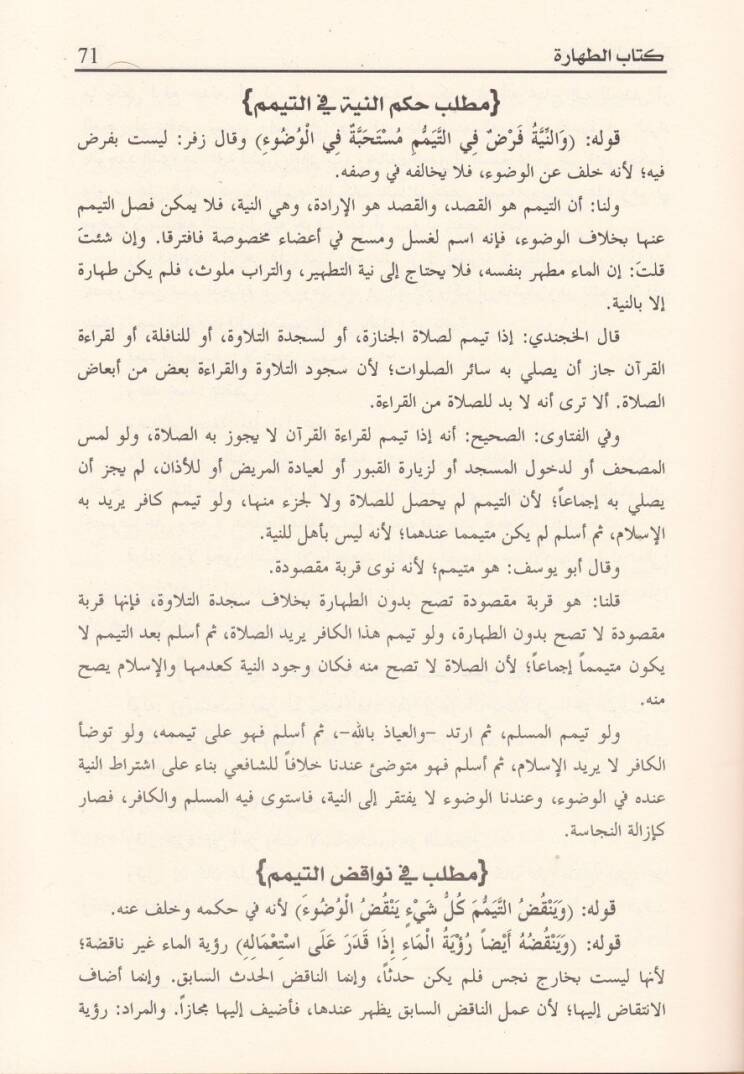 كتاب الطهارة 71
{مطلب حكم النية في التيمم}
قوله: (وَالنِّيَّةُ فَرْضٌ فِي التَّيَمُّمِ مُسْتَحَبَّةٌ فِي الْوُضُوءِ) وقال زفر: ليست بفرض
فيه؛ لأنه خلف عن الوضوء، فلا يخالفه في وصفه.
ولنا: أن التيمم هو القصد، والقصد هو الإرادة، وهي النية، فلا يمكن فصل التيمم
عنها بخلاف الوضوء، فإنه اسم لغسل ومسح في أعضاء مخصوصة فافترقا. وإن شئتَ
قلتَ: إن الماء مطهر بنفسه، فلا يحتاج إلى نية التطهير، والتراب ملوث، فلم يكن طهارة
إلا بالنية.
قال الخجندي: إذا تيمم لصلاة الجنازة، أو لسجدة التلاوة، أو للنافلة، أو لقراءة
القرآن جاز أن يصلي به سائر الصلوات؛ لأن سجود التلاوة والقراءة بعض من أبعاض
الصلاة. ألا ترى أنه لا بد للصلاة من القراءة.
وفي الفتاوى: الصحيح: أنه إذا تيمم لقراءة القرآن لا يجوز به الصلاة، ولو لمس
المصحف أو لدخول المسجد أو لزيارة القبور أو لعيادة المريض أو للأذان، لم يجز أن
يصلي به إجماعاً؛ لأن التيمم لم يحصل للصلاة ولا لجزء منها، ولو تيمم كافر يريد به
الإسلام، ثم أسلم لم يكن متيمما عندهما؛ لأنه ليس بأهل للنية.
وقال أبو يوسف: هو متيمم؛ لأنه نوى قربة مقصودة.
قلنا: هو قربة مقصودة تصح بدون الطهارة بخلاف سجدة التلاوة، فإنها قربة
مقصودة لا تصح بدون الطهارة، ولو تيمم هذا الكافر يريد الصلاة، ثم أسلم بعد التيمم لا
يكون متيمماً إجماعاً؛ لأن الصلاة لا تصح منه فكان وجود النية كعدمها والإسلام يصح
منه.
ولو تيمم المسلم، ثم ارتد -والعياذ بالله-، ثم أسلم فهو على تيممه، ولو توضأ
الكافر لا يريد الإسلام، ثم أسلم فهو متوضئ عندنا خلافاً للشافعي بناء على اشتراط النية
عنده في الوضوء، وعندنا الوضوء لا يفتقر إلى النية، فاستوى فيه المسلم والكافر، فصار
كإزالة النجاسة.
{مطلب في نواقض التيمم}
قوله: (وَيَنْقُضُ التَّيَمُّمَ كُلُّ شَيْءٍ يَنْقُضُ الْوُضُوءَ) لأنه في حكمه وخلف عنه.
قوله: (وَيَنْقُضُهُ أَيْضاً رُؤْيَةُ الْمَاءِ إِذَا قَدَرَ عَلَى اسْتِعْمَالِهِ) رؤية الماء غير ناقضة؛
لأنها ليست بخارج نجس فلم يكن حدثاً، وإنما الناقض الحدث السابق. وإنما أضاف
الانتقاض إليها؛ لأن عمل الناقض السابق يظهر عندها، فأضيف إليها مجازاً. والمراد: رؤية